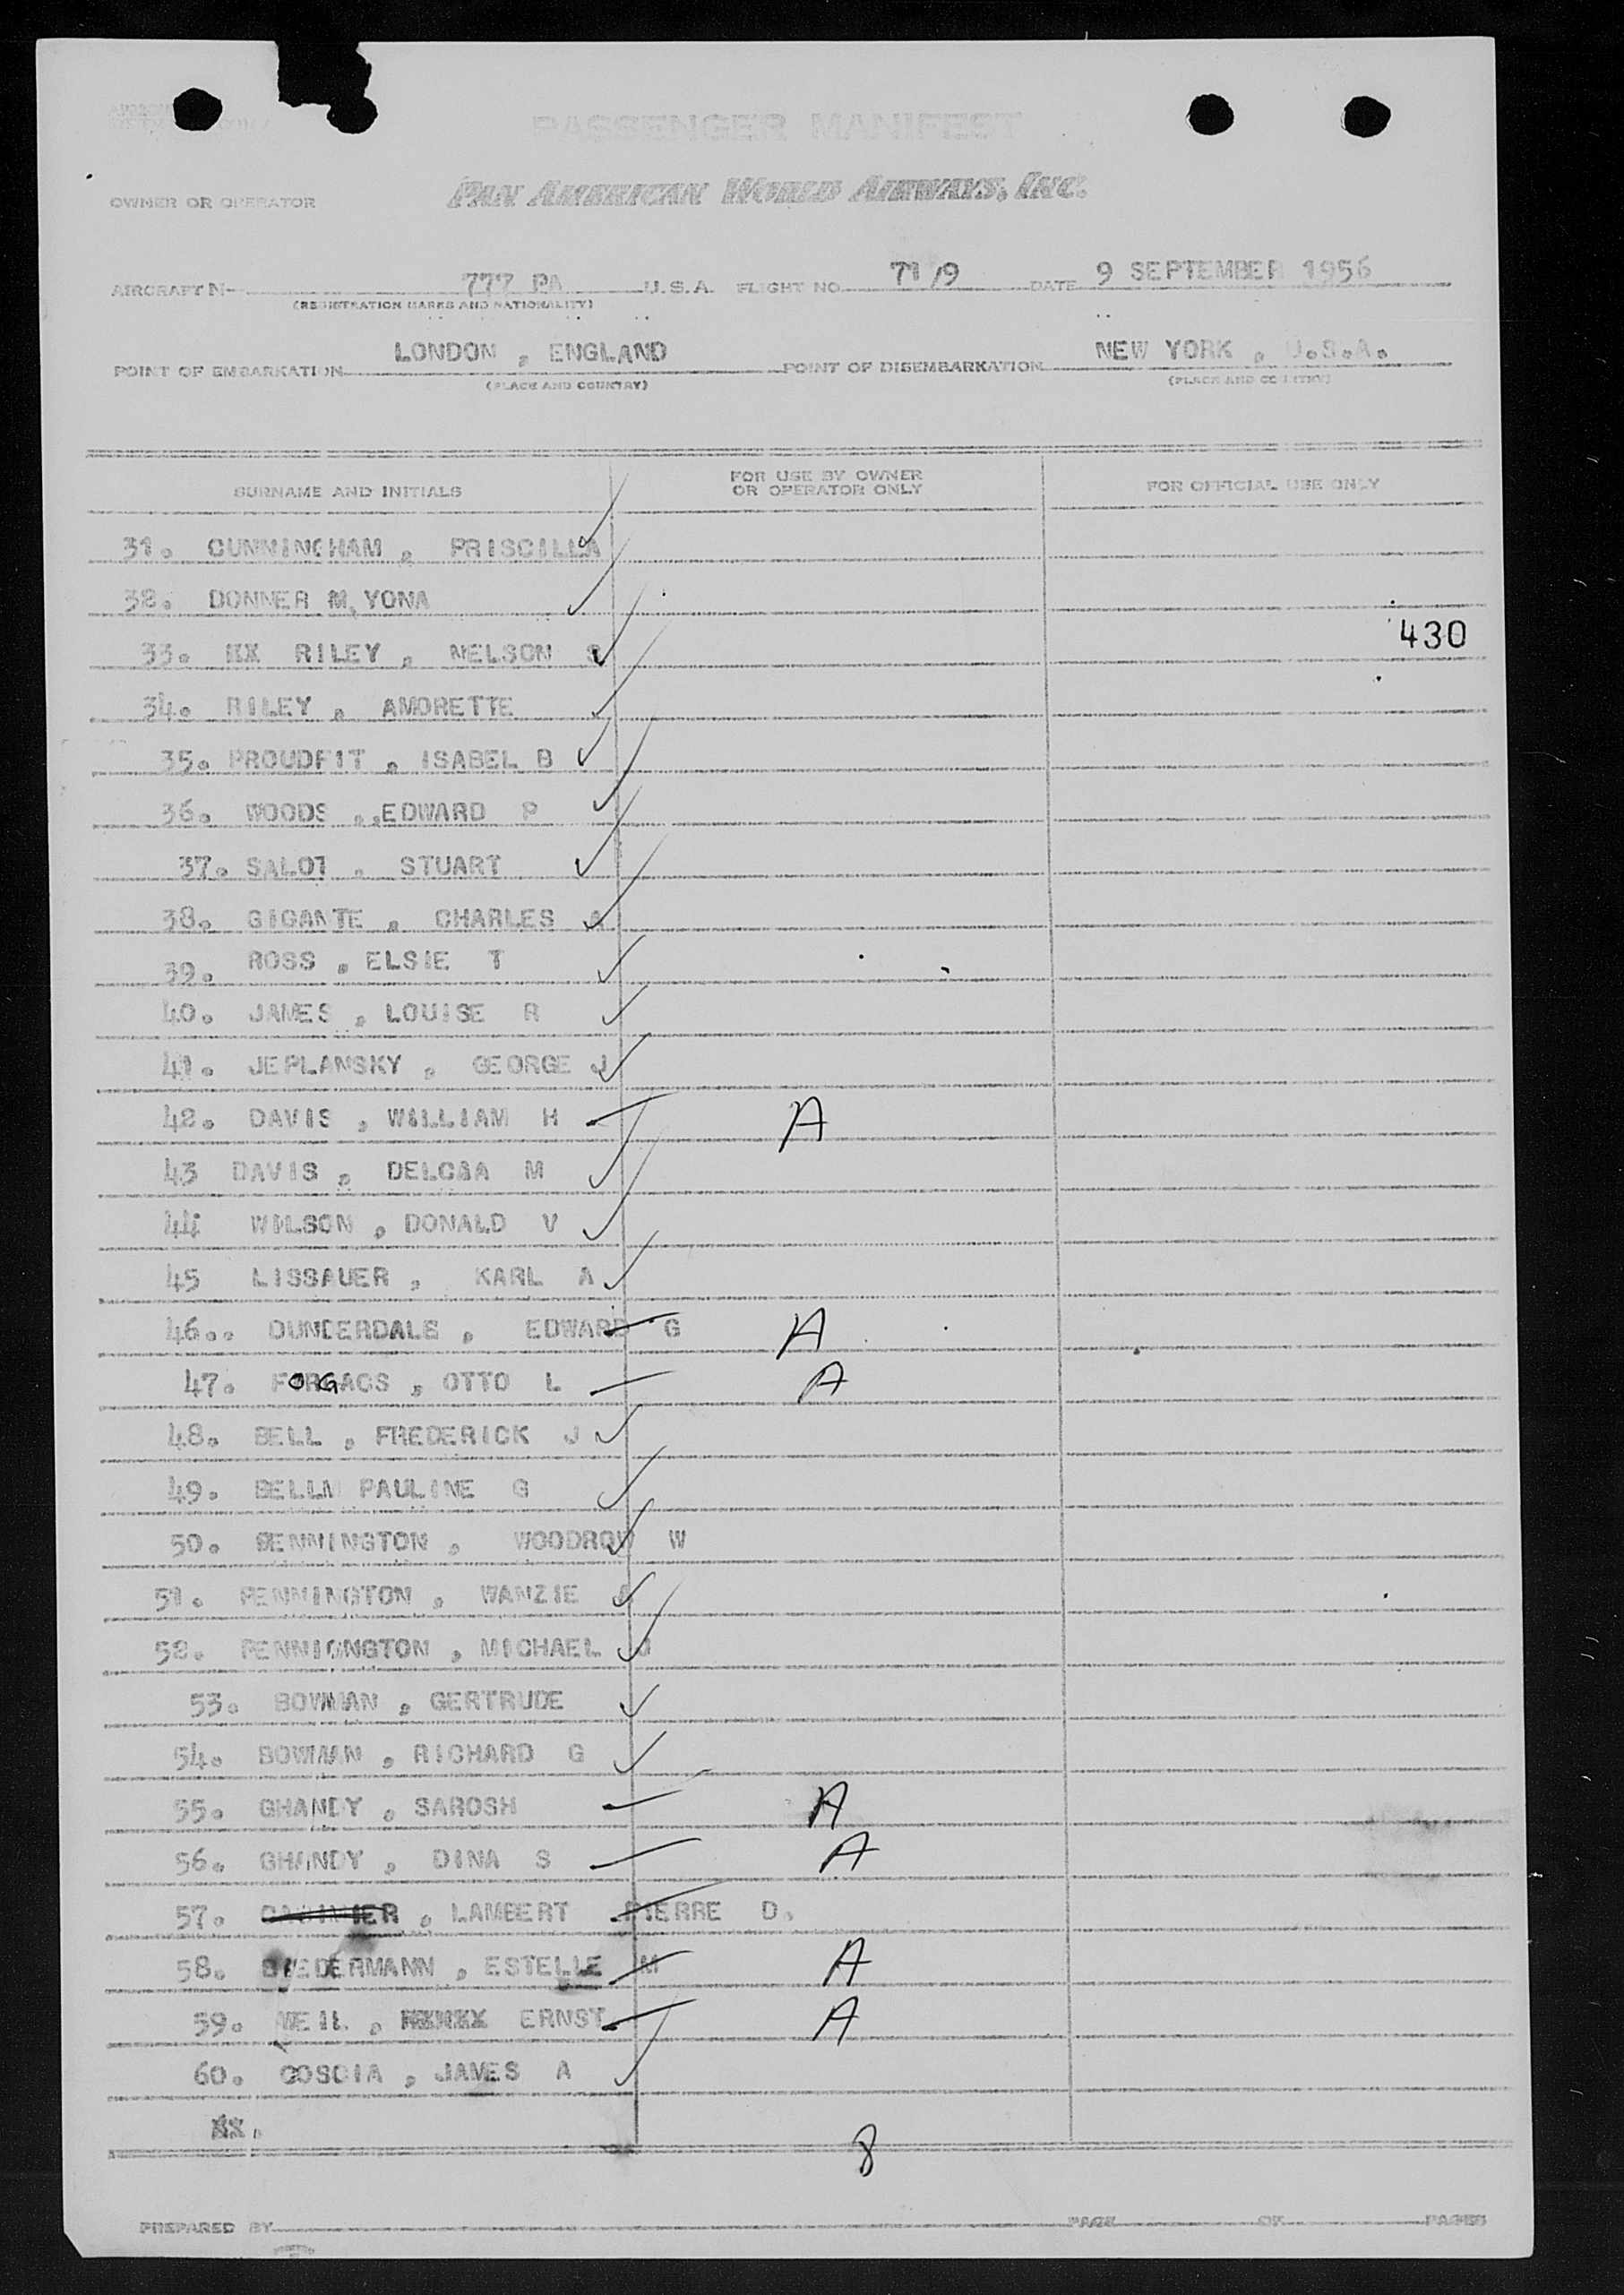 PASSENGER MANIFEST
OWNER OR OPERATOR PAN AMERICAN WORLD AIRWAYS, INC.
AIRCRAFT N- 777 PA U.S.A. FLIGHT NO. 71/9 DATE 9 SEPTEMBER 1956
(REGISTRATION MARKS AND NATIONALITY)
POINT OF EMBARKATION LONDON , ENGLAND POINT OF DISEMBARKATION NEW YORK , U.S.A.
(PLACE AND COUNTRY) (PLACE AND COUNTRY)
SURNAME AND INITIALS FOR USE BY OWNER OR OPERATOR ONLY FOR OFFICIAL USE ONLY
31. CUNNINGHAM , PRISCILLA
32. DONNER M, YONA
430
33. XX RILEY , NELSON
34. RILEY , AMORETTE
35. PROUDFIT , ISABEL B
36. WOODS , ,EDWARD P
37. SALOT , STUART
38. GIGANTE , CHARLES A
39. ROSS , ELSIE T
40. JAMES , LOUISE R
41. JEPLANSKY , GEORGE J
42. DAVIS , WILLIAM H A
43 DAVIS , M
44 WILSON , DONALD V
45 LISSAUER , KARL A
46.. DUNDERDALE , EDWARD G A
47. FORGACS , OTTO L A
48. BELL , FREDERICK J
49. BELLM PAULINE G
50. PENNINGTON , WOODROW W
51. PENNINGTON , WANZIE
52. PENNIONGTON , MICHAEL J
53. BOWMAN , GERTRUDE
54. BOWMAN , RICHARD G
55. GHANDY , SAROSH A
56. GHANDY , DINA S A
57. , LAMBERT PIERRE D.
58. BIEDERMANN , ESTELLE M A
59. WEIL , ERNST A
60. COSCIA , JAMES A
8
PREPARED BY PAGE OF PAGES